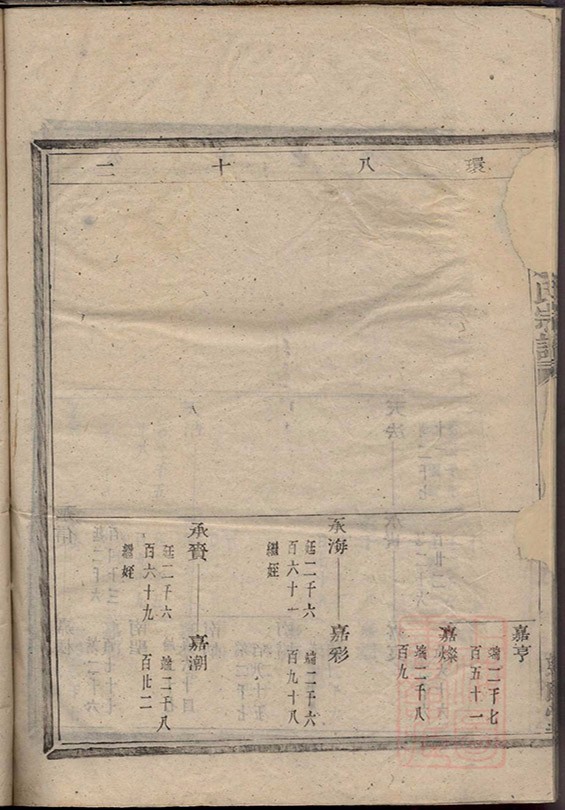 環八十二
氏宗譜
嘉亨
端二千七
百五十一
嘉燦
端二千八
百九
承海
廷二千六
百六十一
繼姪
嘉彩
端二千六
百九十八
承賚
廷二千六
百六十九
繼姪
嘉潮
端二千八
百廿二